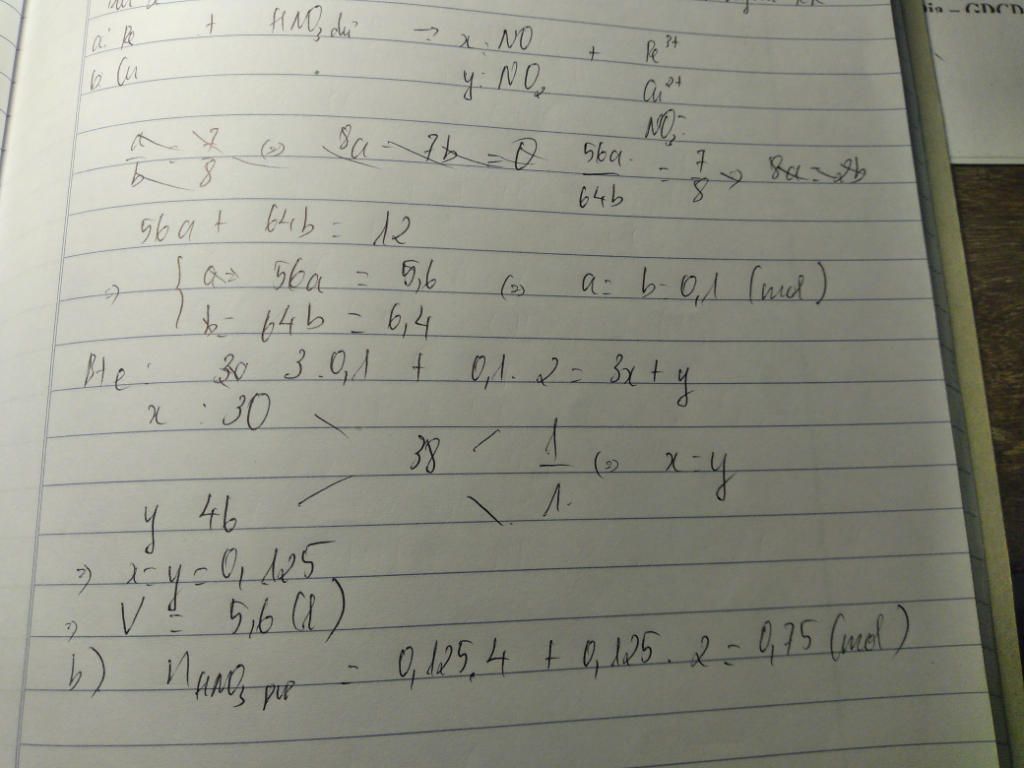 a: Fe + HNO3 dư → x: NO + Fe3+
b Cu y: NO2 Cu2+
NO3-
a/b = 7/8 (=) 8a - 7b = 0 56a/64b = 7/8 → 8a = 8b
56a + 64b = 12
=> { a => 56a = 5,6 (=) a = b = 0,1 (mol)
b = 64b = 6,4
Bte: 3.0,1 + 0,1.2 = 3x + y
x : 30
38 1/1 (=) x = y
y 46
=> x = y = 0,125
=> V = 5,6 (l)
b) nHNO3 pư = 0,125.4 + 0,125.2 = 0,75 (mol)